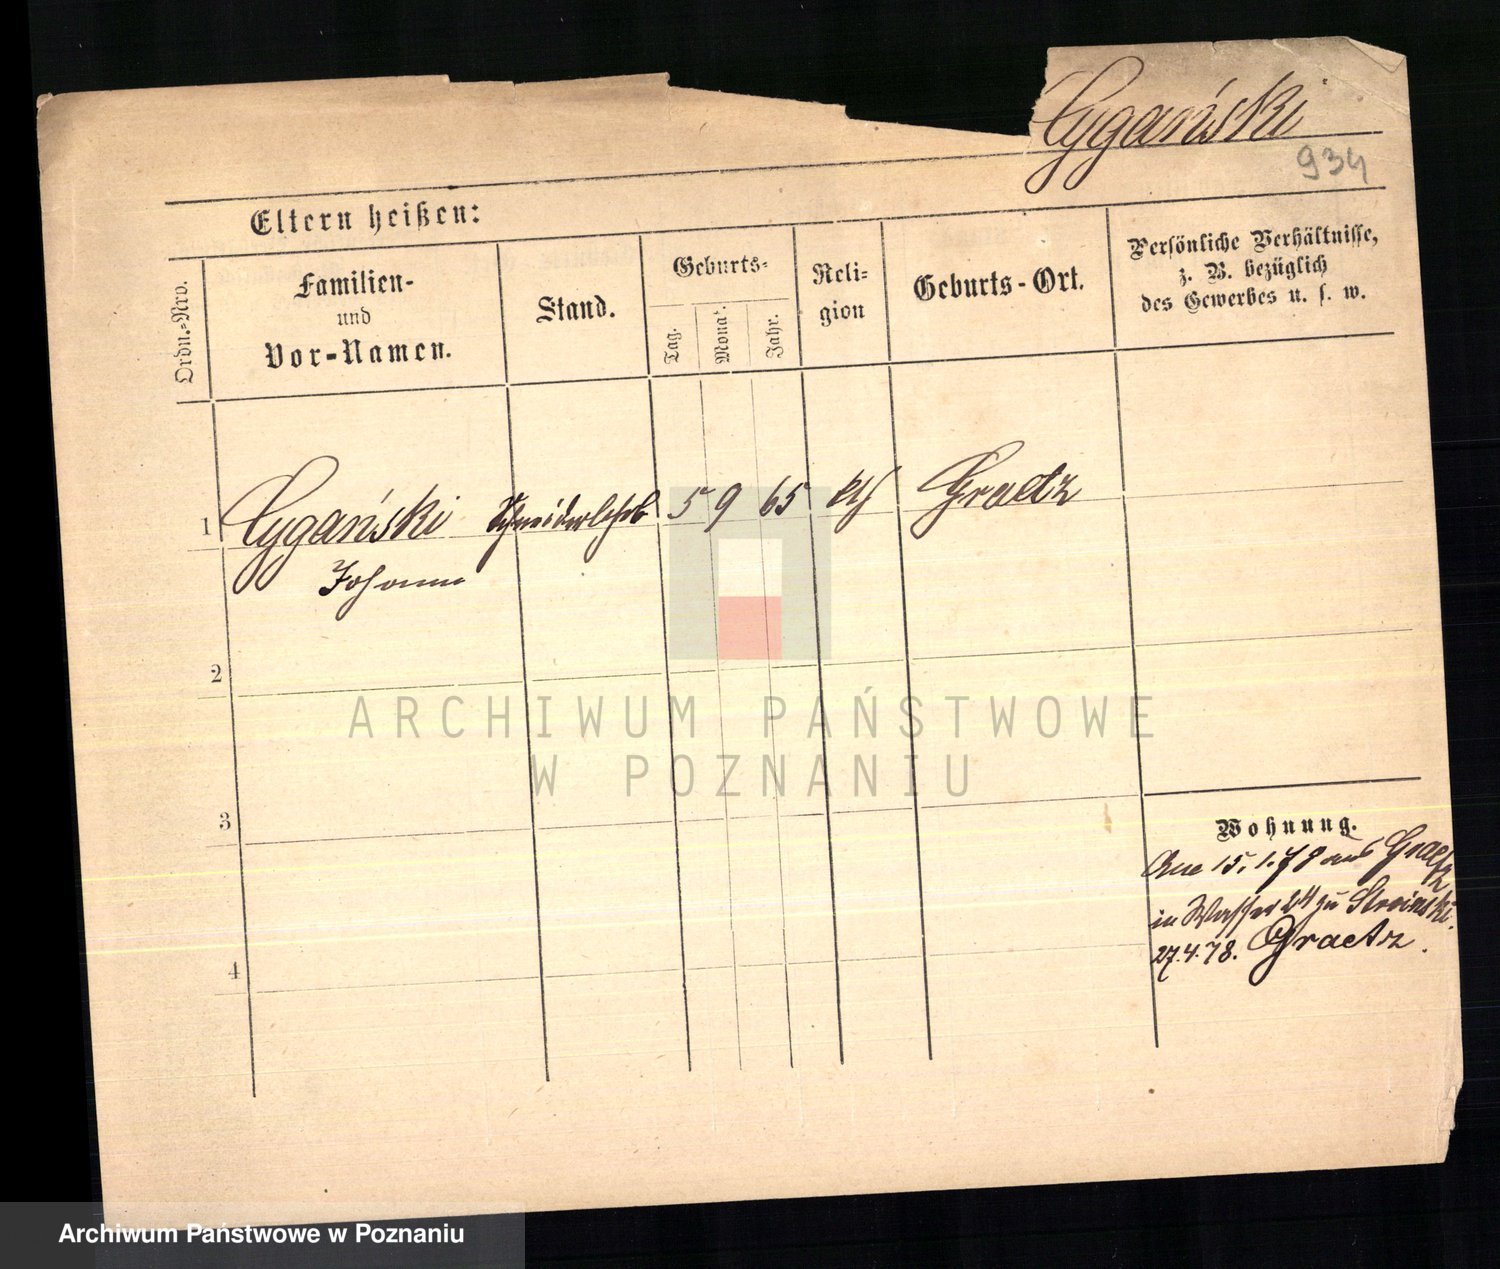 Cygański
934
Eltern heißen:
Ordn.-Nro.
Familien-
und
Vor-Namen.
Stand.
Geburts-
Tag.
Monat.
Jahr.
Reli-
gion
Geburts-Ort.
Persönliche Verhältnisse,
z. B. bezüglich
des Gewerbes u. s. w.
1 Cygański Schneiderlehrl 5 9 65 kth Graetz
Johann
2
3
4
Wohnung.
15.1.78 aus Graetz
in Wasser 24 zu
27.4.78. Graetz.
ARCHIWUM PAŃSTWOWE
W POZNANIU
Archiwum Państwowe w Poznaniu